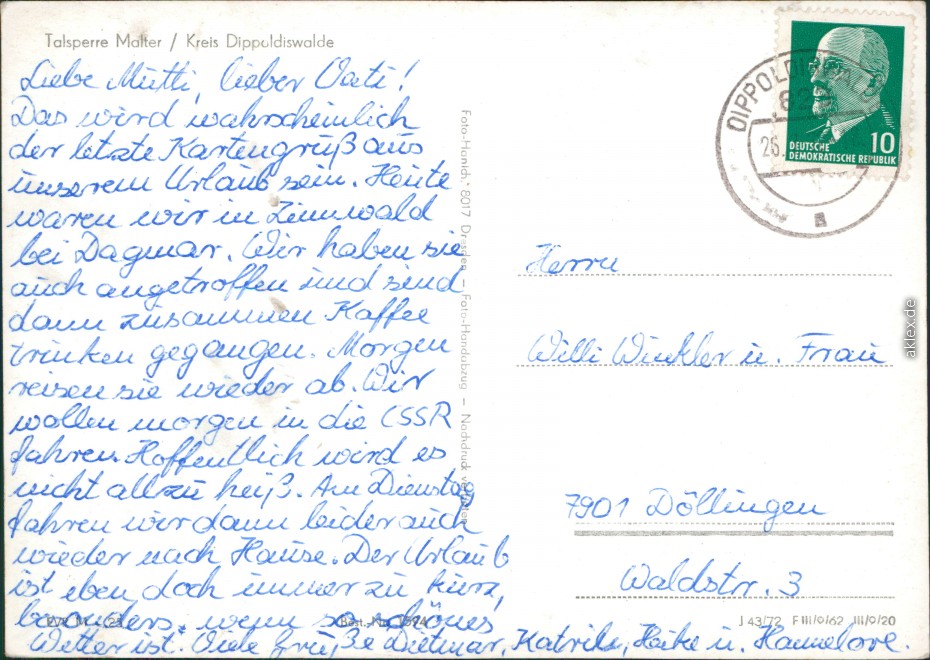 Talsperre Malter / Kreis Dippoldiswalde
Liebe Mutti, lieber Vati!
Das wird wahrscheinlich
der letzte Kartengruß aus
unserem Urlaub sein. Heute
waren wir in Zinnwald
bei Dagmar. Wir haben sie
auch angetroffen und sind
dann zusammen Kaffee
trinken gegangen. Morgen
reisen sie wieder ab. Wir
wollen morgen in die CSSR
fahren. Hoffentlich wird es
nicht allzu heiß. Am Dienstag
fahren wir dann leider auch
wieder nach Hause. Der Urlaub
ist eben doch immer zu kurz,
besonders, wenn so schönes
Wetter ist. Viele Grüße Dietmar, Katrily, Heike u. Hannelore.
Foto-Hanich, 8017 Dresden – Foto-Handabzug – Nachdruck
DEUTSCHE
DEMOKRATISCHE REPUBLIK
10
DIPPOLDI
26.
Herrn
Willi Winkler u. Frau
7901 Döllingen
Waldstr. 3
J 43/72 F III/0/62 III/9/20
aklex.de